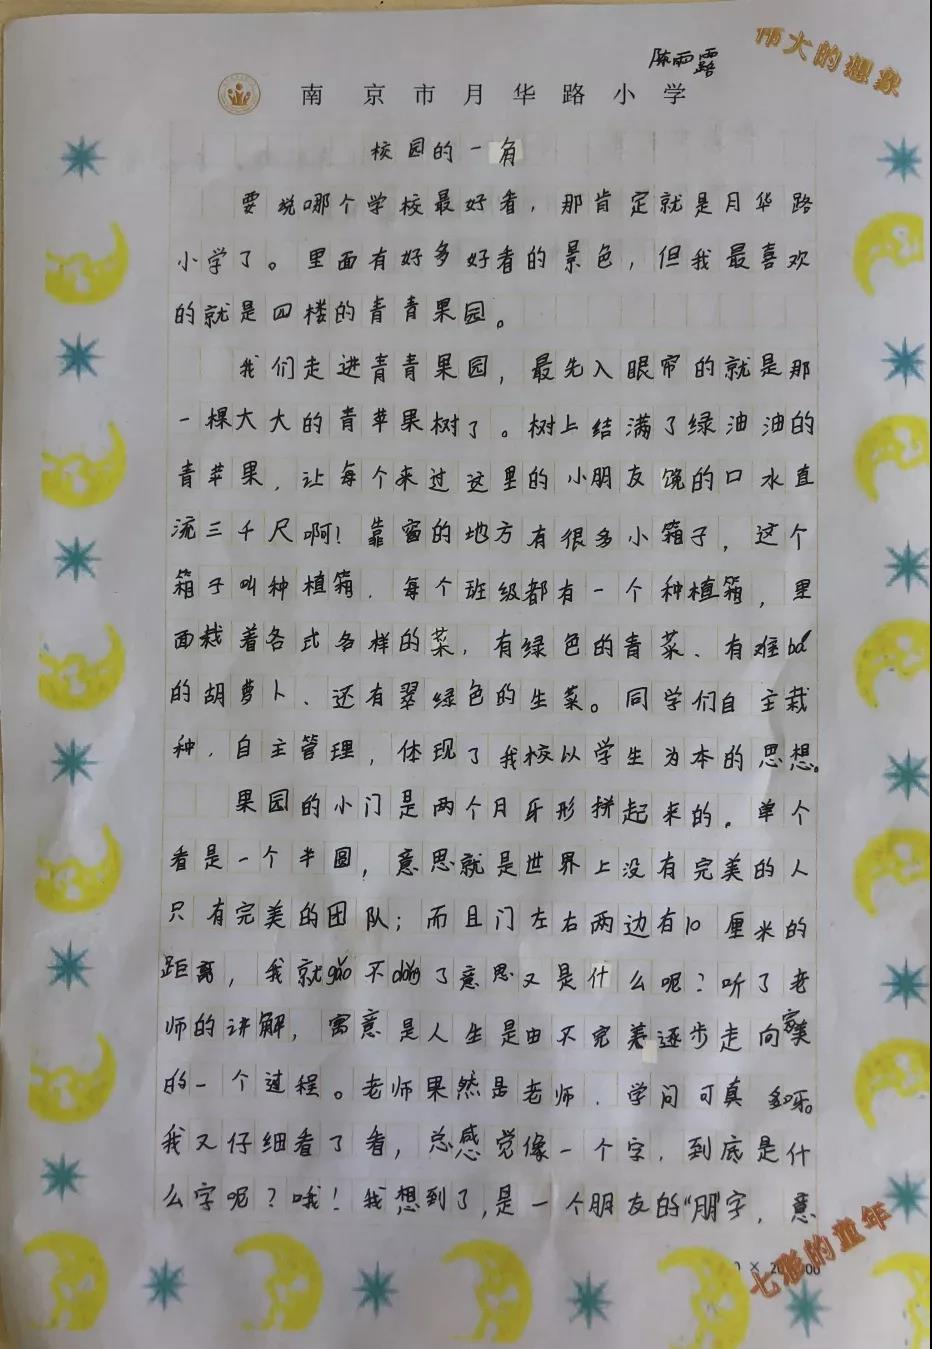 伟大的想象
陈雨露
南京市月华路小学
校园的一角
要说哪个学校最好看，那肯定就是月华路
小学了。里面有好多好看的景色，但我最喜欢
的就是四楼的青青果园。
我们走进青青果园，最先入眼帘的就是那
一棵大大的青苹果树了。树上结满了绿油油的
青苹果，让每个来过这里的小朋友馋的口水直
流三千尺啊！靠窗的地方有很多小箱子，这个
箱子叫种植箱．每个班级都有一个种植箱，里
面栽着各式各样的菜，有绿色的青菜、有难bá
的胡萝卜、还有翠绿色的生菜。同学们自主栽
种．自主管理，体现了我校以学生为本的思想。
果园的小门是两个月牙形拼起来的。单个
看是一个半圆，意思就是世界上没有完美的人
只有完美的团队；而且门左右两边有10厘米的
距离，我就gǎo不dǒng了意思又是什么呢？听了老
师的讲解，寓意是人生是由不完美逐步走向完美
的一个过程。老师果然是老师．学问可真多呀。
我又仔细看了看，总感觉像一个字．到底是什
么字呢？哦！我想到了，是一个朋友的“朋”字，意
七雅的童年